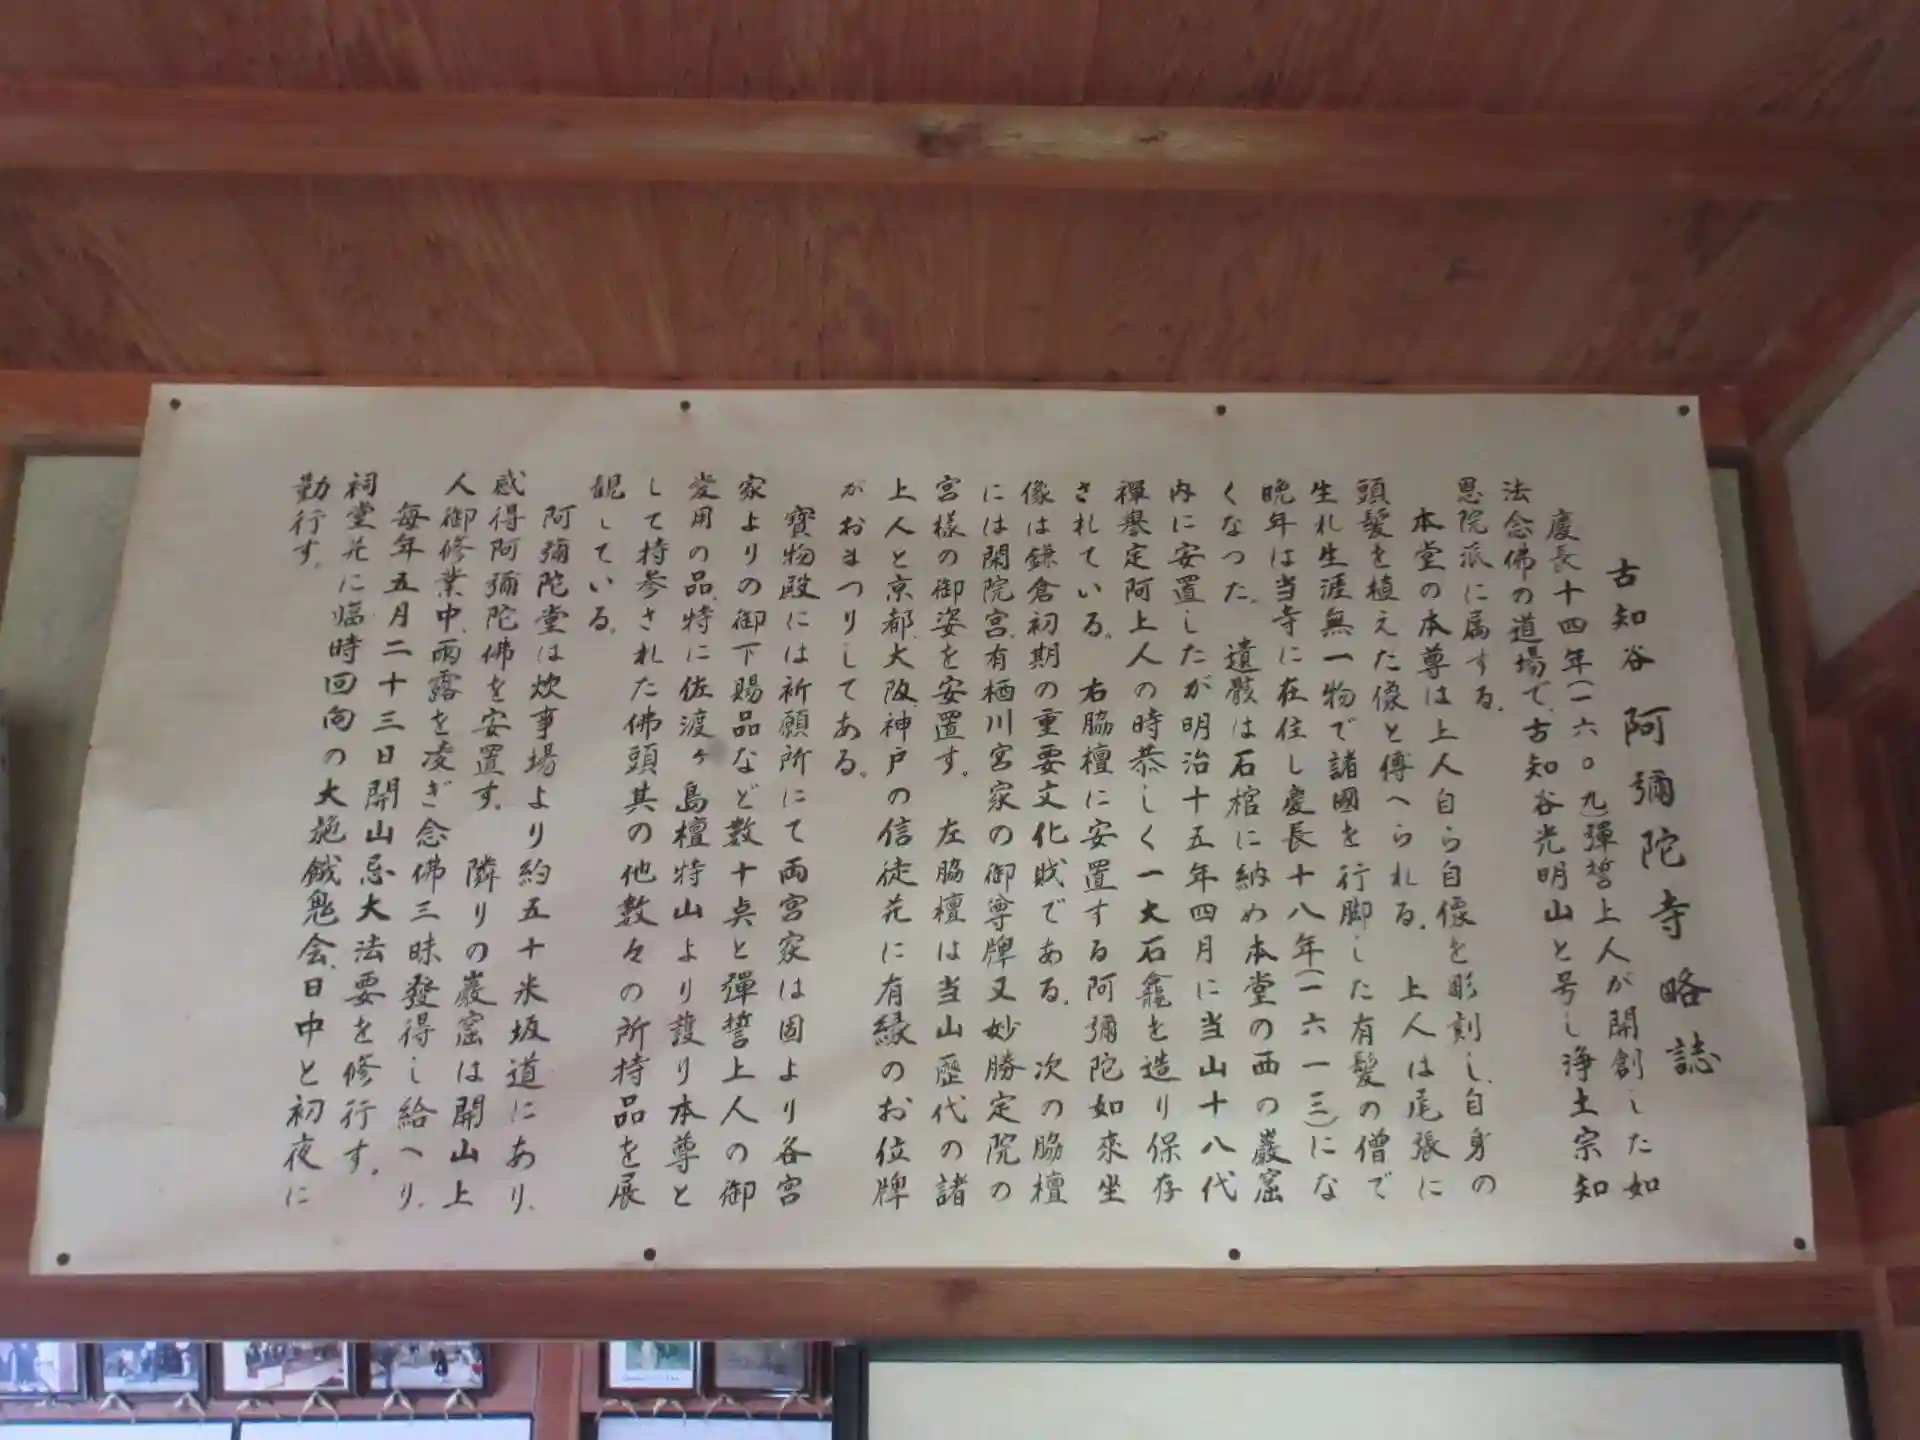 古知谷 阿彌陀寺略誌
慶長十四年(一六〇九)彈誓上人が開創した如
法念佛の道場で、古知谷光明山と号し浄土宗知
恩院派に属する。
本堂の本尊は上人自ら自像を彫刻し、自身の
頭髪を植えた像と傳へられる。 上人は尾張に
生れ生涯無一物で諸國を行脚した有髪の僧で
晩年は当寺に在住し慶長十八年(一六一三)にな
くなつた。 遺骸は石棺に納め本堂の西の巖窟
内に安置したが明治十五年四月に当山十八代
禪譽定阿上人の時恭しく一大石龕を造り保存
されている。 右脇檀に安置する阿彌陀如來坐
像は鎌倉初期の重要文化財である。 次の脇檀
には閑院宮、有栖川宮家の御尊牌又妙勝定院の
宮樣の御姿を安置す。 左脇檀は当山歴代の諸
上人と京都、大阪、神戸の信徒芘に有縁のお位牌
がおまつりしてある。
寶物殿には祈願所にて両宮家は固より各宮
家よりの御下賜品など数十点と彈誓上人の御
愛用の品、特に佐渡ヶ島檀特山より護り本尊と
して持参された佛頭其の他数々の所持品を展
観している。
阿彌陀堂は炊事場より約五十米坂道にあり、
感得阿彌陀佛を安置す。 隣りの巖窟は開山上
人御修業中、雨露を凌ぎ念佛三昧發得し給へり、
毎年五月二十三日開山忌大法要を修行す。
祠堂芘に臨時回向の大施餓鬼会、日中と初夜に
勤行す。